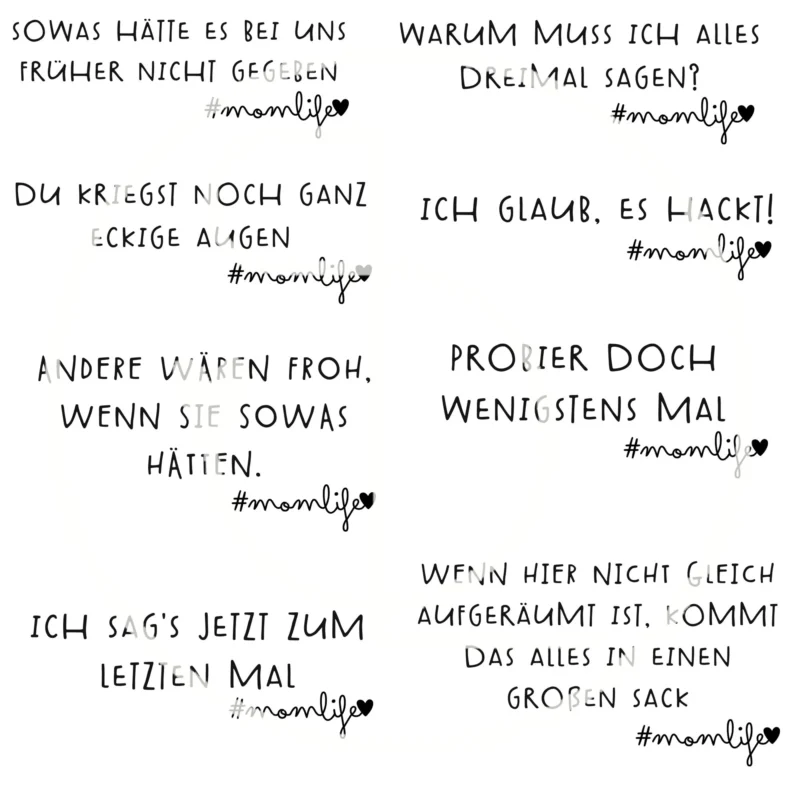 SOWAS HÄTTE ES BEI UNS
FRÜHER NICHT GEGEBEN
#momlife
WARUM MUSS ICH ALLES
DREIMAL SAGEN?
#momlife
DU KRIEGST NOCH GANZ
ECKIGE AUGEN
#momlife
ICH GLAUB, ES HACKT!
#momlife
ANDERE WÄREN FROH,
WENN SIE SOWAS
HÄTTEN.
#momlife
PROBIER DOCH
WENIGSTENS MAL
#momlife
ICH SAG'S JETZT ZUM
LETZTEN MAL
#momlife
WENN HIER NICHT GLEICH
AUFGERÄUMT IST, KOMMT
DAS ALLES IN EINEN
GROßEN SACK
#momlife